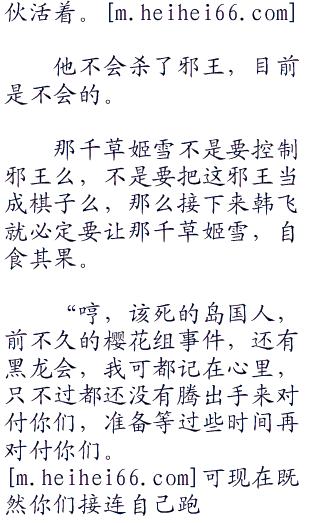 伙活着。[m.heihei66.com]
他不会杀了邪王，目前
是不会的。
那千草姬雪不是要控制
邪王么，不是要把这邪王当
成棋子么，那么接下来韩飞
就必定要让那千草姬雪，自
食其果。
“哼，该死的岛国人，
前不久的樱花组事件，还有
黑龙会，我可都记在心里，
只不过都还没有腾出手来对
付你们，准备等过些时间再
对付你们。
[m.heihei66.com]可现在既
然你们接连自己跑